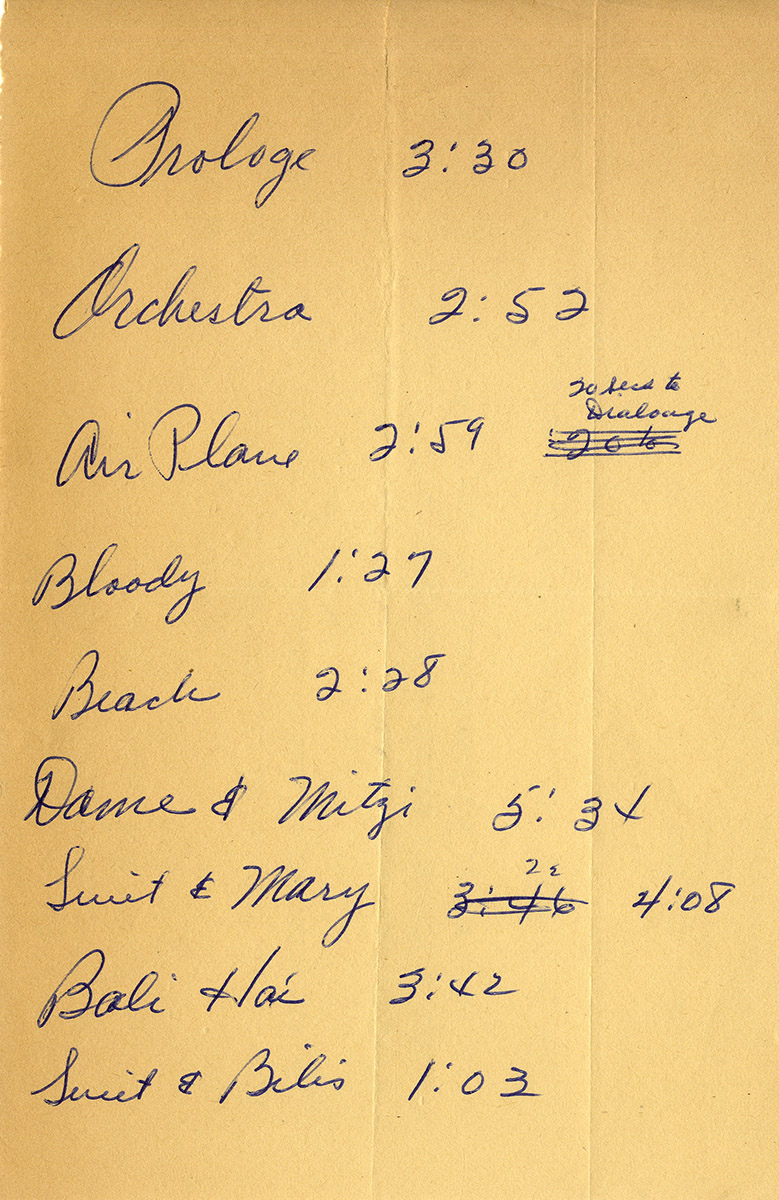 Prologe 3:30
Orchestra 2:52
20 secs to
Dialouge
Air Plane 2:59
Bloody 1:27
Beach 2:28
Dame & Mitzi 5:34
22
& Mary 3:46 4:08
Bali Hai 3:42
& Bilis 1:03